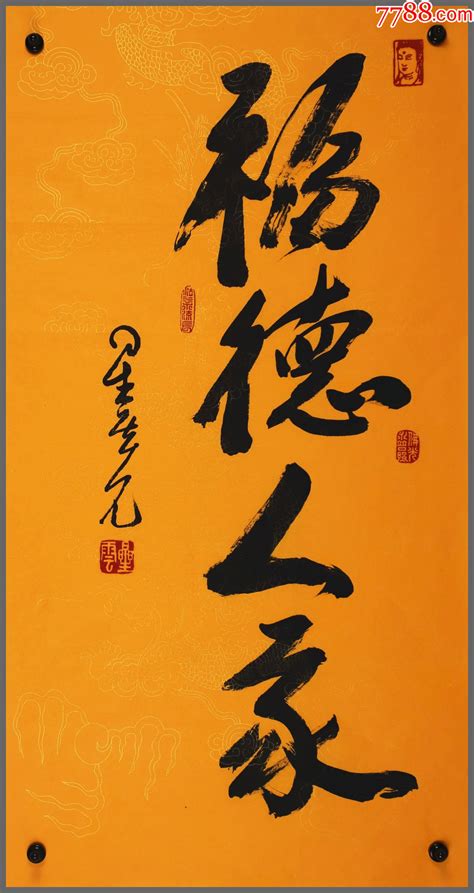 7788.com
福德人家
星雲